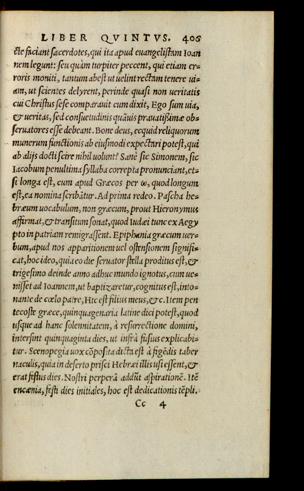 LIBER QVINTVS. 406
cte faciant sacerdotes, qui ita apud euangelistam Ioan
nem legunt: seu quàm turpiter peccent, qui etiam er-
roris moniti, tantum abest ut uelint rectam tenere ui-
am, ut scientes delyrent, perinde quasi non ueritatis
cui Christus sese comparauit cum dixit, Ego sum uia,
& ueritas, sed consuetudinis quãuis prauatissimæ ob-
seruatores esse debeant. Bone deus, ecquid reliquorum
munerum functionis ab eiusmodi expectari potest, qui
ab alijs docti scire nihil uolunt? Sanè sic Simonem, sic
Iacobum penultima syllaba correpta pronunciant, et-
si longa est, cum apud Græcos per ω, quod longum
est, ea nomina scribãtur. Ad prima redeo. Pascha he-
bræum uocabulum, non græcum, proùt Hieronymus
affirmat, & transitum sonat, quod Iudæi tunc ex Aegy
pto in patriam remigrassent. Epiphania græcum uer-
bum, apud nos apparitionem uel ostensionem signifi-
cat, hoc ideo, quia eo die seruator stella proditus est, &
trigesimo deinde anno adhuc mundo ignotus, cum ue-
nisset ad Ioannem, ut baptizaretur, cognitus est, into-
nante de cœlo patre, Hic est filius meus, &c. Item pen
tecoste græce, quinquagenaria latine dici potest, quod
usque ad hanc solennitatem, à resurrectione domini,
intersint quinquaginta dies, ut infrà fusius explicabi-
tur. Scenopegia uox cõposita dicta est à figẽdis taber
naculis, quia in deserto prisci Hebræi illis usi essent, &
erat festus dies. Nostri perperã addũt aspirationẽ. Itẽ
encænia, festi dies initiales, hoc est dedicationis tẽpli.
Cc 4